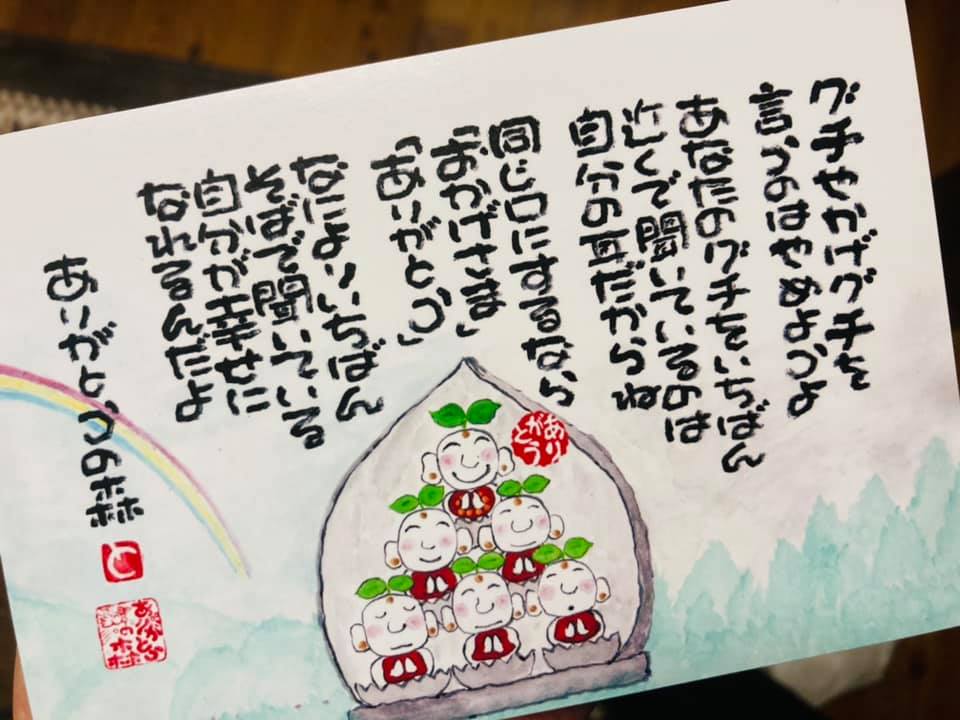 グチやかげグチを
言うのはやめようよ
あなたのグチをいちばん
近くで聞いているのは
自分の耳だからね
同じ口にするなら
「おかげさま」
「ありがとう」
なによりいちばん
そばで聞いている
自分が幸せに
なれるんだよ
ありがとうの森
ありがとう
と